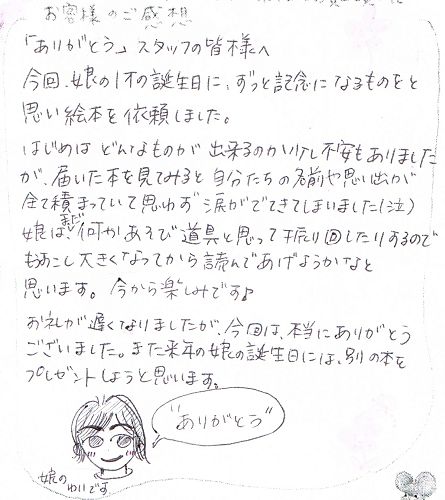 お客様のご感想
「ありがとう」スタッフの皆様へ
今回、娘の1才の誕生日に、ずっと記念になるものをと
思い絵本を依頼しました。
はじめはどんなものが出来るのか少し不安もありました
が、届いた本を見てみると自分たちの名前や思い出が
全て積まっていて思わず涙がでてきてしまいました(泣)
娘はまだ何かあそび道具と思って振り回したりするので
もう少し大きくなってから読んであげようかなと
思います。今から楽しみです♪
お礼が遅くなりましたが、今回は、本当にありがとう
ございました。また来年の娘の誕生日には、別の本を
プレゼントしようと思います。
"ありがとう"
娘の
ゆいです